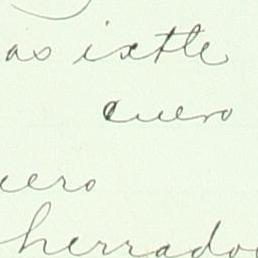 as ixtle
cuero
uero
herrado